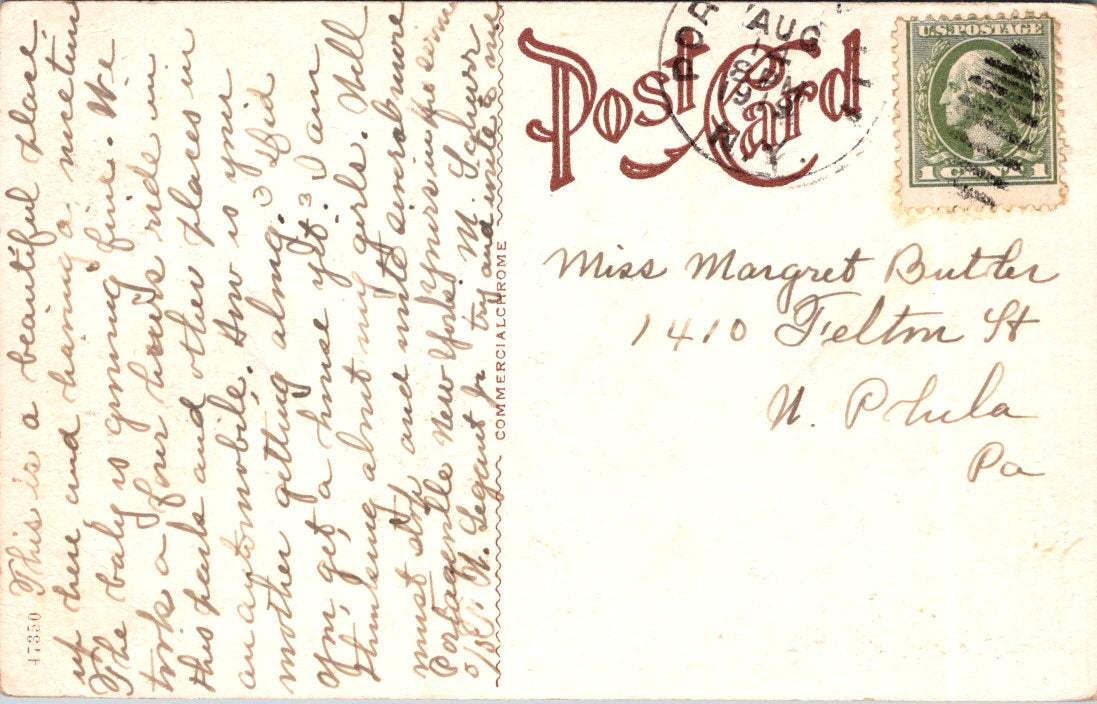 This is a beautiful place
up here and having a nice time
The baby is growing fine. We
took a four hours ride in
this park and other places in
an automobile. How is your
mother getting along. Did
you get a house yet. I am
thinking about my girls. Well
must stop and write
Portageville New York Yours in the
M.
try and write to me
47350
COMMERCIALCHROME
Post Card
POR
AUG
N.Y.
U.S. POSTAGE
1 CENT 1
Miss Margret Butler
1410 Felton St
W. Phila
Pa